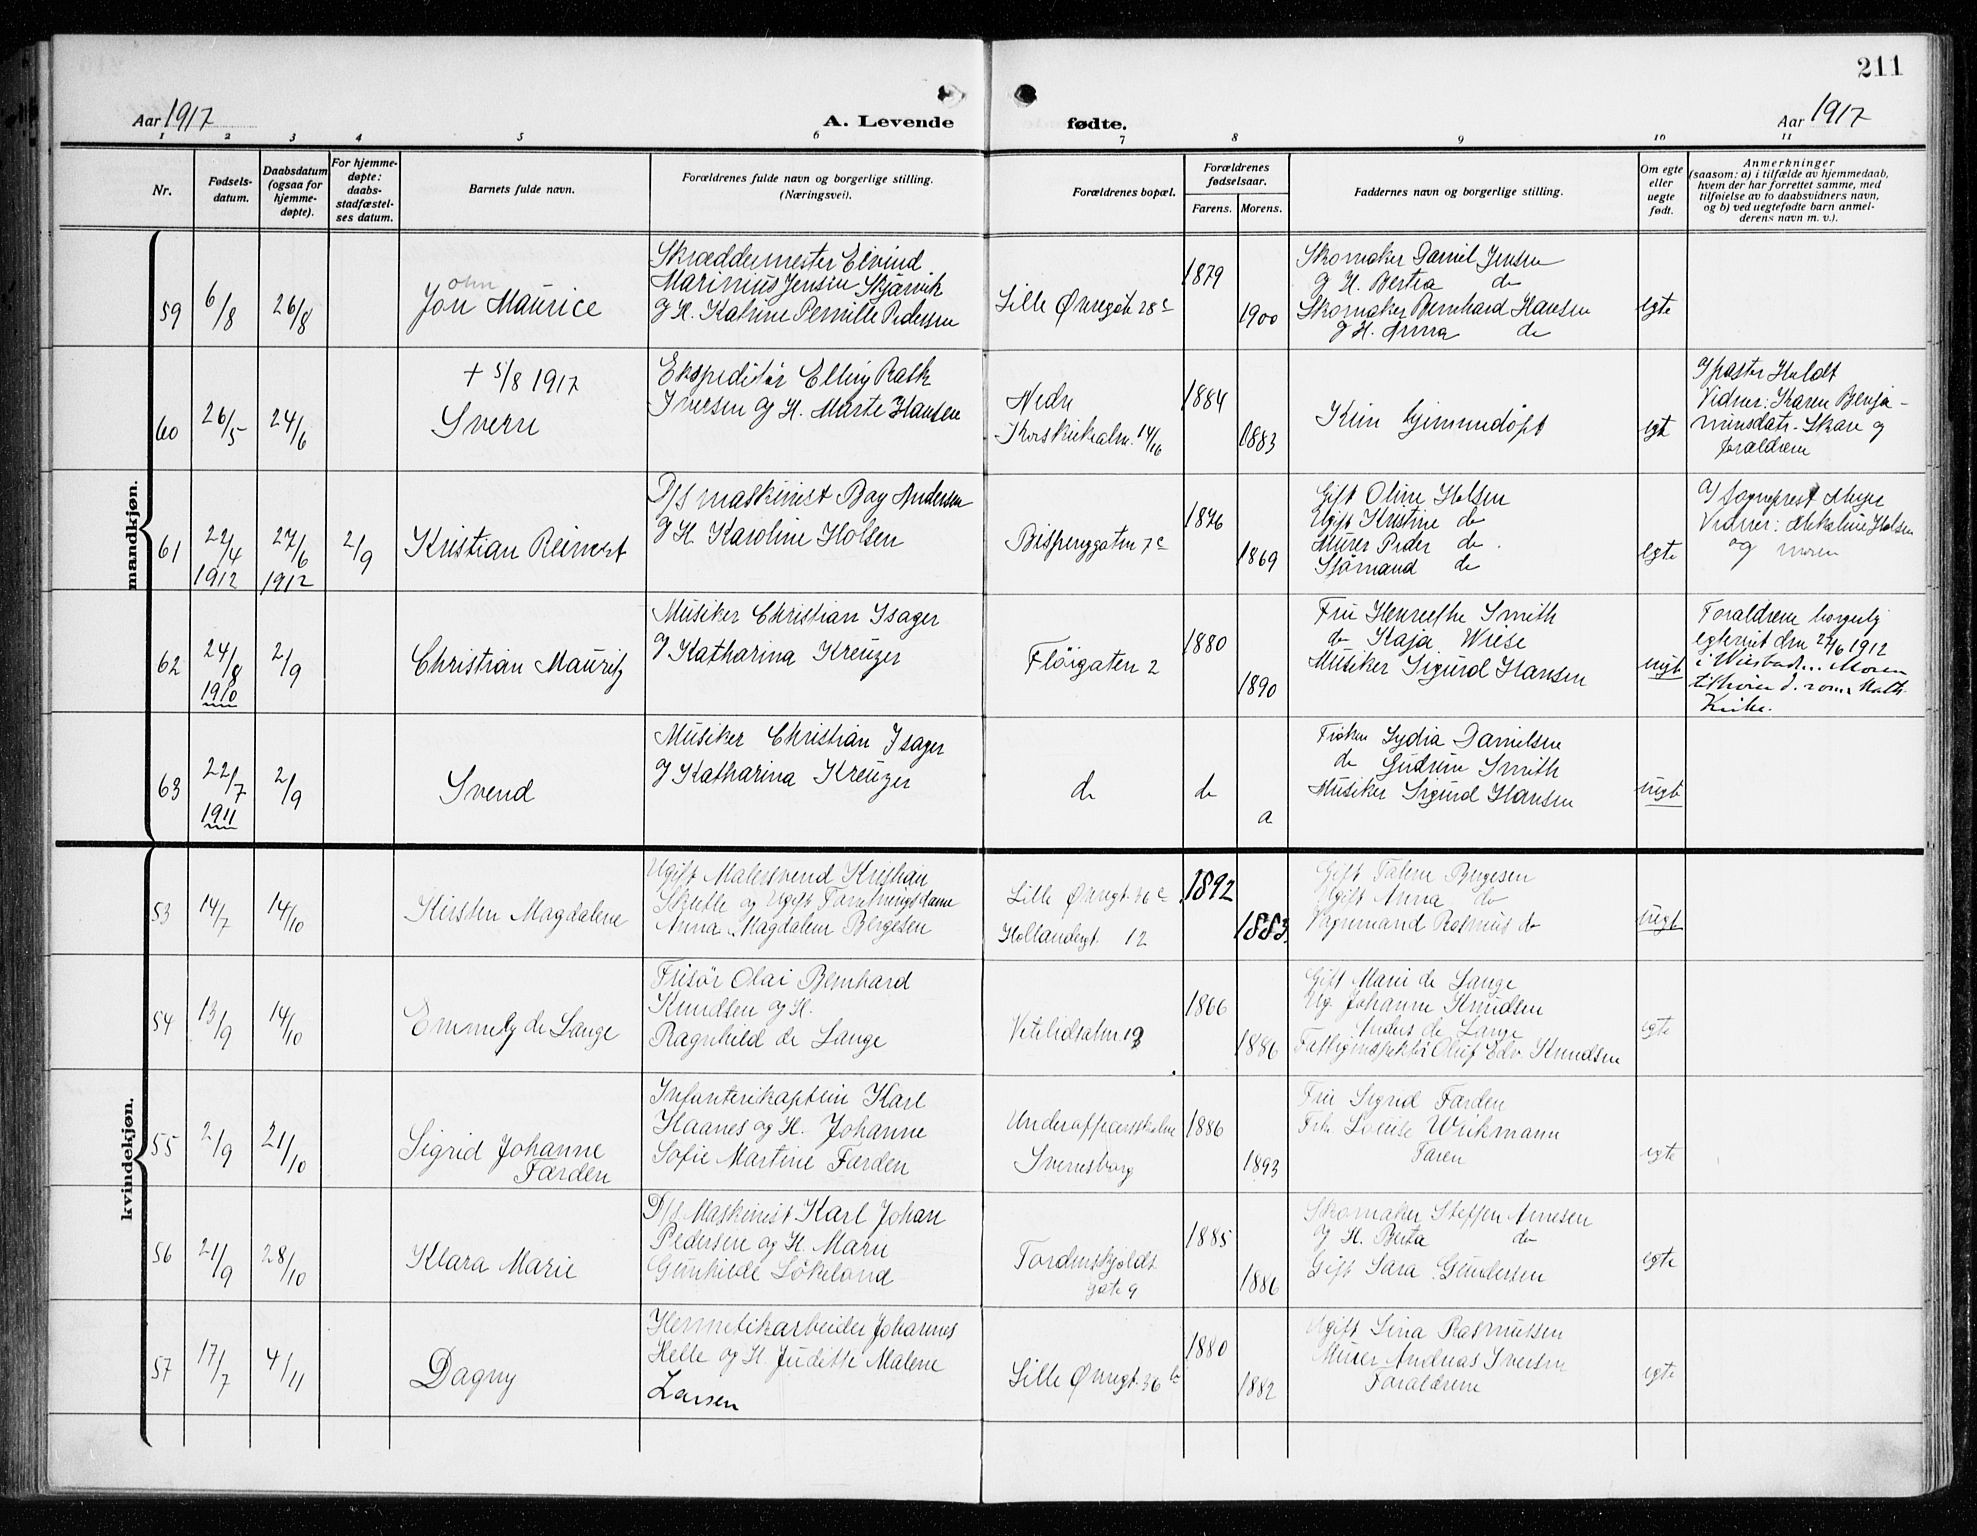 211
Aar 1917
A. Levende
fødte.
Aar 1917
1 2 3 4 5 6 7 8 9 10 11
Nr.
Fødsels-
datum.
Daabsdatum
(ogsaa for
hjemme-
døpte).
For hjemme-
døpte:
daabs-
stadfæstel-
ses datum.
Barnets fulde navn.
Forældrenes fulde navn og borgerlige stilling.
(Næringsvei).
Forældrenes bopæl.
Forældrenes
fødselsaar.
Farens. Morens.
Faddernes navn og borgerlige stilling.
Om egte
eller
uegte
født.
Anmerkninger
(saasom: a) i tilfælde av hjemmedaab,
hvem der har forrettet samme, med
tilføielse av to daabsvidners navn,
og b) ved uegtefødte barn anmel-
derens navn m. v.).
mandkjøn.
59
6/8
26/8
ohn
Jon Maurice
Skræddermester Eivind
Marinius Jensen Skjærvik
og H. Katrine Pernille Pedersen
Lille Øvregate 28c
1879
1900
Skomaker Daniel Jensen
og H. Berta do
Skomaker Bernhard Hansen
og H. Anna do
egte
60
26/5
24/6
+ 5/8 1917
Sverre
Ekspeditør Elling
Iversen og H. Marte Hansen
Nedre
Korskirkealm. 14/16
1884
1883
Kun hjemmedøpt
egt
Af pastor
Vidner: Karen Benja-
minsdatr. Skare og
forældrene
61
22/4
1912
27/6
1912
2/9
Kristian Reinert
D/s maskinist Bay Andersen
og H. Karoline Holsen
Bispenggaten 7c
1876
1869
Gift Oline Holsen
Ugift Kristine do
Murer Peder do
Sjømand do
egte
Af sogneprest Meyer
Vidner: Holsen
og moren
62
24/8
1910
2/9
Christian Mauritz
Musiker Christian Isager
og Katharina Kreuzer
Fløigaten 2
1880
1890
Fru Henriette Smith
do Kaja Wiese
Musiker Sigurd Hansen
uegt
Forældrene borgerlig
egteviet den 27/6 1912
i Wiesbad... Moren
tilhører d. rom. kath.
Kirke.
63
22/7
1911
2/9
Svend
Musiker Christian Isager
og Katharina Kreuzer
do
do
do
Frøken Lydia Danielsen
do Gudrun Smith
Musiker Sigurd Hansen
uegt
kvindekjøn.
53
14/7
14/10
Kirsten Magdalene
Ugift Malersvend Kristian
Skulle og Ugift Forretningsdame
Anna Magdalene Bergesen
Lille Øvregt. 36c
Hollendergt. 12
1892
1883
Gift Talene Bergesen
Ugift Anna do
Vognmand Rasmus do
uegt
54
13/9
14/10
Emmely de Lange
Frisør Olai Bernhard
Knudsen og H.
Ragnhild de Lange
Vetrlidsalm. 13
1866
1886
Gift Marie de Lange
Ug. Johanne Knudsen
Anders de Lange
Fattiginspektør Oluf Edv. Knudsen
egte
55
2/9
21/10
Sigrid Johanne
Færden
Infanterikaptein Karl
Haanes og H. Johanne
Sofie Martine Færden
Underofficersskolen
Sverresborg
1886
1893
Fru Sigrid Færden
Frk. Louise Wiekmann
Faren
egte
56
21/9
28/10
Klara Marie
D/s Maskinist Karl Johan
Pedersen og H. Marie
Gunhilde Løkeland
Tordenskjolds
gate 9
1885
1886
Skomaker Steffen Arnesen
og H. Berta do
Gift Sara Gundersen
egte
57
17/7
4/11
Dagny
Hermetikarbeider Johannes
Helle og H. Judith Malene
Larsen
Lille Øvregt. 36b
1880
1882
Ugift Lina Rasmussen
Murer Andreas Iversen
Forældrene
egte